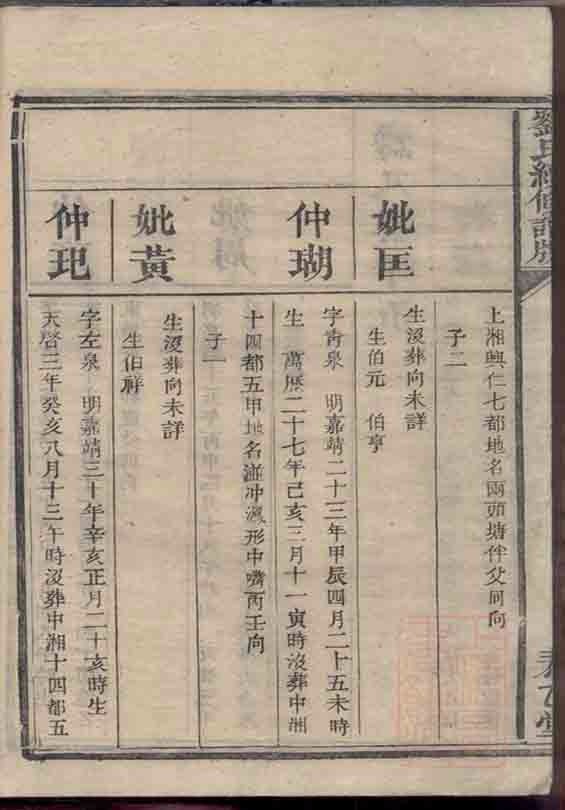 劉氏經修譜牒
上湘興仁七都地名兩頭塘伴父同向
子二
妣匡
生沒葬向未詳
生伯元 伯亨
仲瑚
字脊泉 明嘉靖二十三年甲辰四月二十五未時
生 萬歷二十七年己亥三月十一寅時沒葬中湘
十四都五甲地名 冲 形中嘴丙壬向
子一
妣黃
生沒葬向未詳
生伯祥
仲玘
字左泉 明嘉靖三十年辛亥正月二十亥時生
天啓三年癸亥八月十三午時沒葬中湘十四都五